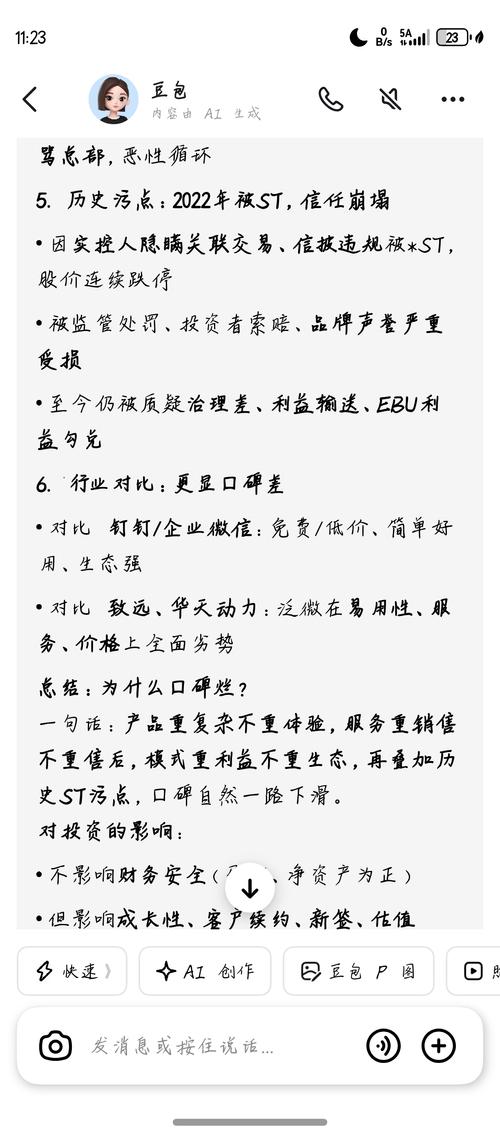 11:23
0 B/s 5A 23
豆包
内容由 AI 生成
骂总部，恶性循环
5. 历史污点：2022年被ST，信任崩塌
• 因实控人隐瞒关联交易、信披违规被*ST，
股价连续跌停
• 被监管处罚、投资者索赔、品牌声誉严重
受损
• 至今仍被质疑治理差、利益输送、EBU利
益勾兑
6. 行业对比：更显口碑差
• 对比 钉钉/企业微信：免费/低价、简单好
用、生态强
• 对比 致远、华天动力：泛微在易用性、服
务、价格上全面劣势
总结：为什么口碑烂？
一句话：产品重复杂不重体验，服务重销售
不重售后，模式重利益不重生态，再叠加历
史ST污点，口碑自然一路下滑。
对投资的影响：
• 不影响财务安全（ 、净资产为正）
• 但影响成长性、客户续约、新签、估值
快速 AI 创作 豆包 P 图
发消息或按住说话...